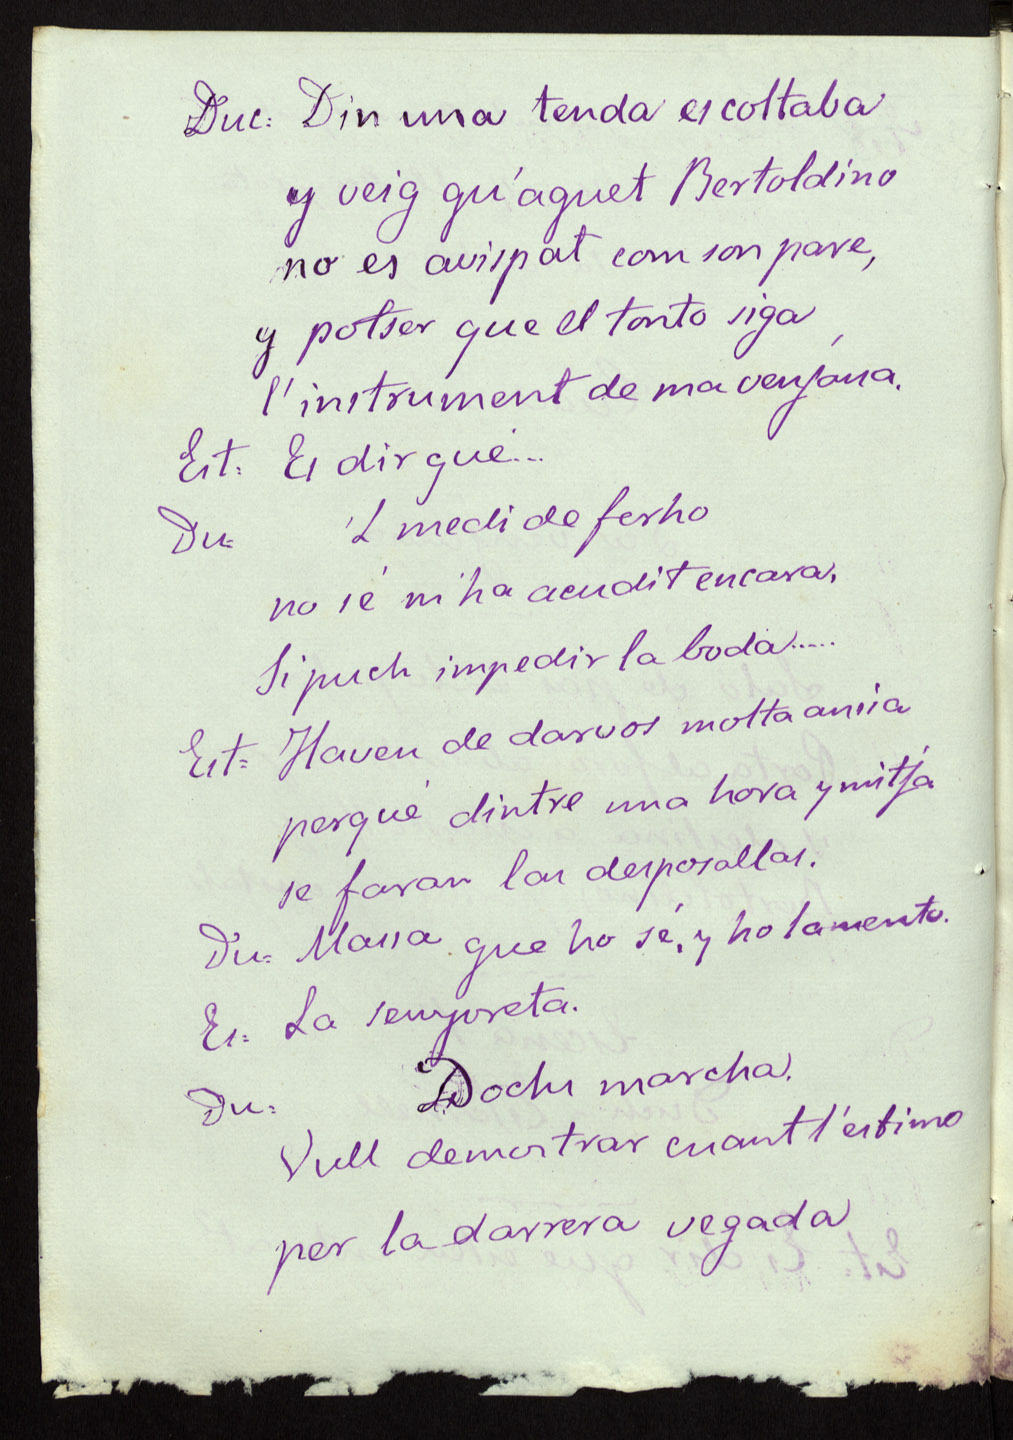 Duc: Din una tenda escoltaba
y veig qu'aquet Bertoldino
no es avispat com son pare,
y potser que el tonto siga
l'instrument de ma venjansa.
Est: Es dir qué...
Du= 'L medi de ferho
no sé m'ha acudit encara,
Si puch impedir la boda.....
Est= Haveu de darvos molta ansia
perqué dintre una hora y mitja
se faran las desposallas.
Du= Massa que ho sé, y ho lamento.
Es= La senyoreta.
Du= Dochs marcha.
Vull demostrar cuant l'estimo
per la darrera vegada